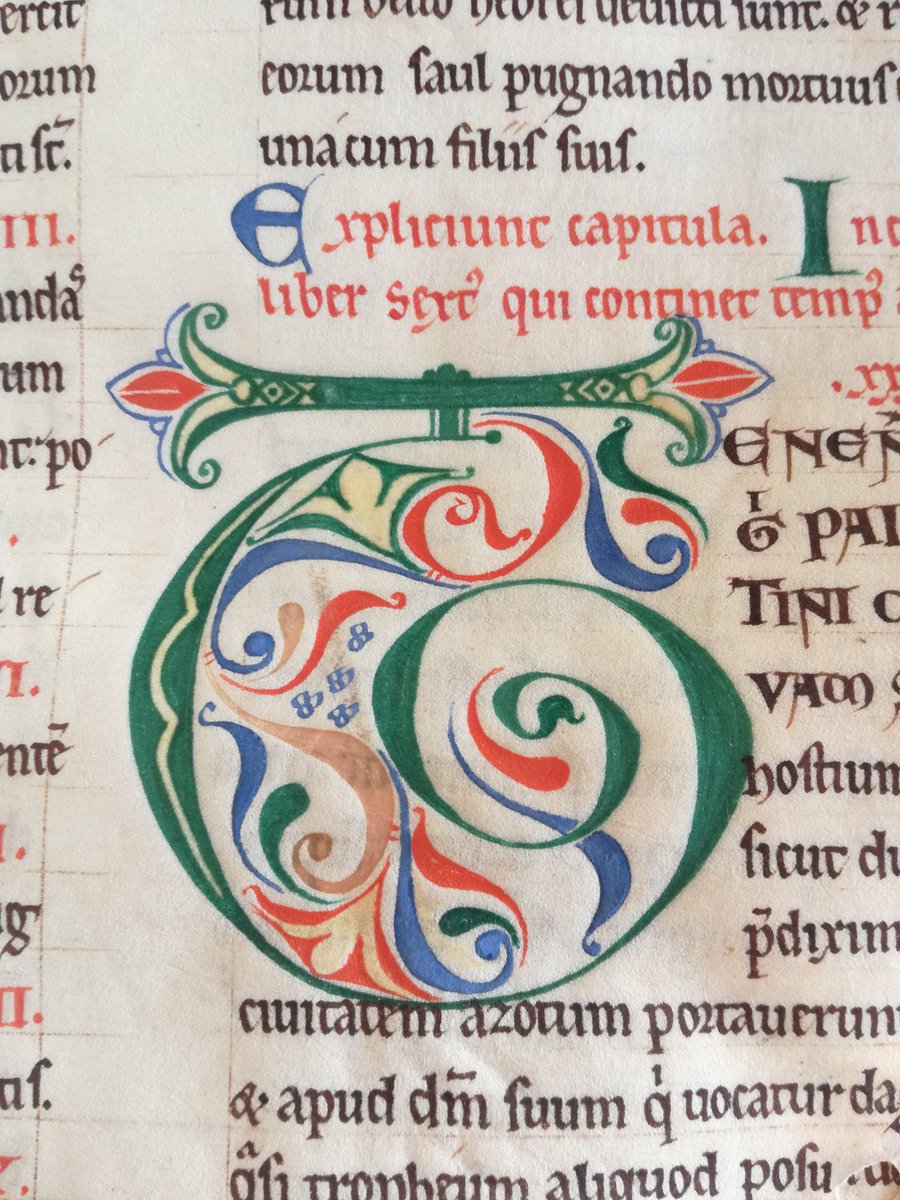 ertit
orum
ti sc̄.
III.
rum
nt: po
d re
VI.
entē
I.
ug
II.
tis.
X.
rum hebrei deuicti sunt. & r
eorum saul pugnando mortuus
una cum filiis suis.
Expliciunt capitula. Inc
liber Sextꝰ qui continet tempꝰ a
.xx
TENEN̄
gⁱ PAL
TINI C
VAM S
hostium
sicut du
p̄dixim
ciuitatem azotum portauerunt
& apud dm̄ suum qⁱ uocatur dag
qᵃsi tropheum aliquod posu